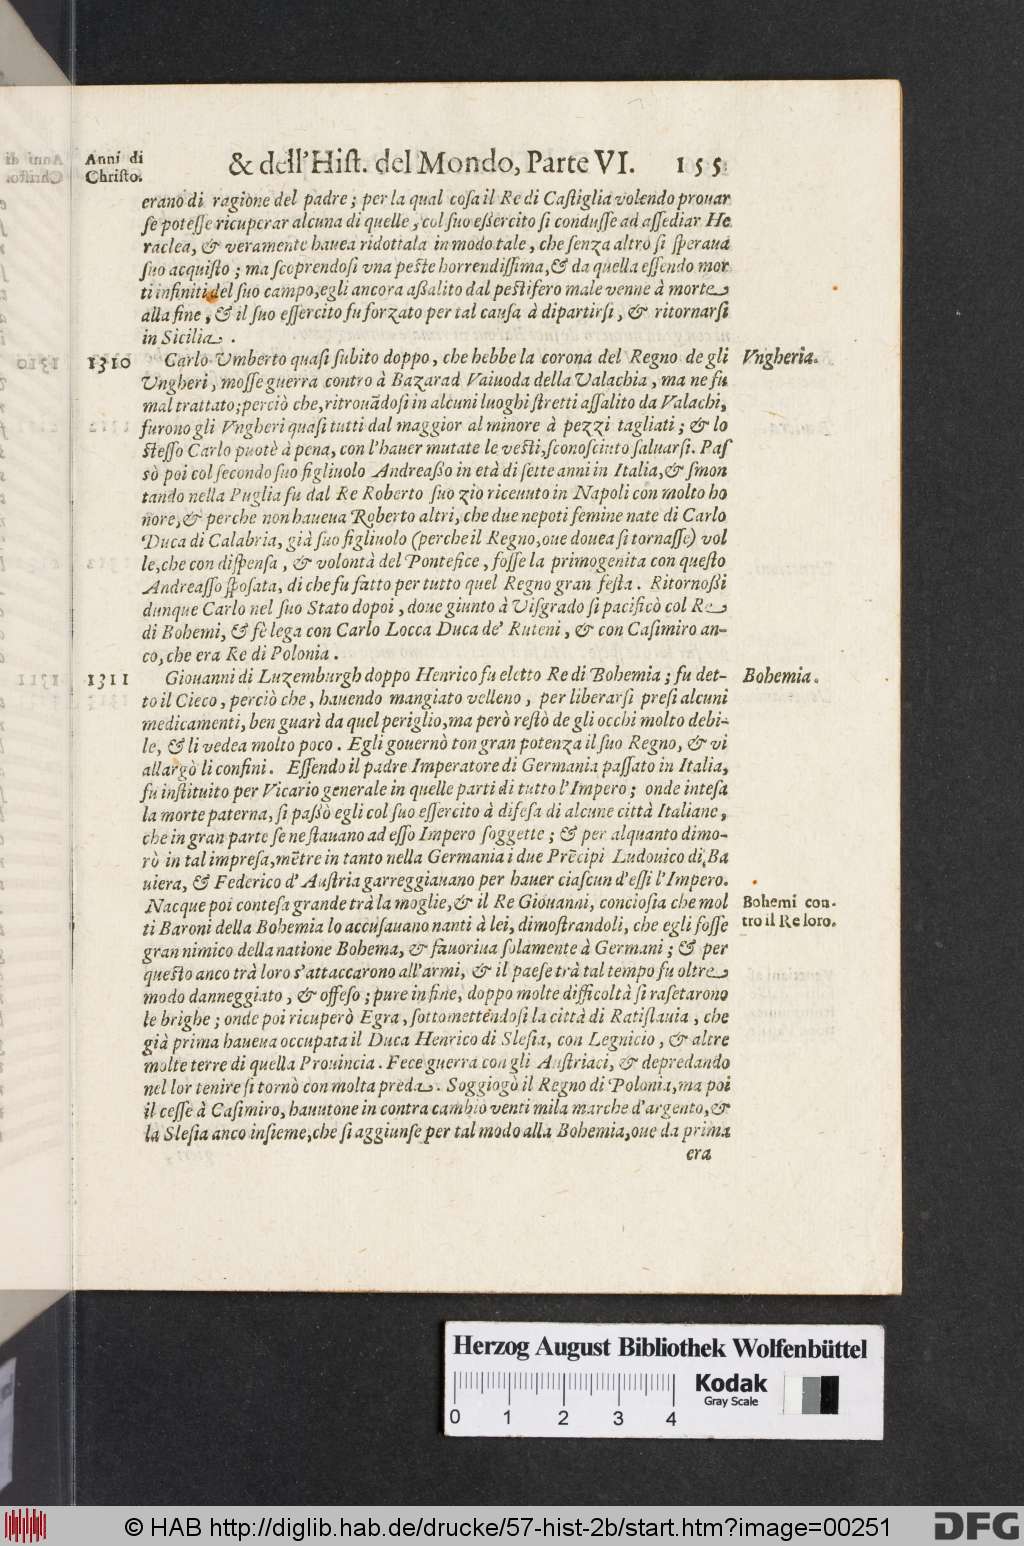 Anni di
Christo.
& dell'Hist. del Mondo, Parte VI. 155
erano di ragione del padre; per la qual cosa il Re di Castiglia volendo prouar
se potesse ricuperar alcuna di quelle, col suo essercito si condusse ad assediar He
raclea, & veramente hauea ridottala in modo tale, che senza altro si speraua
suo acquisto; ma scoprendosi vna peste horrendissima, & da quella essendo mor
ti infiniti del suo campo, egli ancora assalito dal pestifero male venne à morte
alla fine, & il suo essercito fu forzato per tal causa à dipartirsi, & ritornarsi
in Sicilia.
1310 Carlo Vmberto quasi subito doppo, che hebbe la corona del Regno de gli Vngheria.
Vngheri, mosse guerra contro à Bazarad Vaiuoda della Valachia, ma ne fu
mal trattato; perciò che, ritrouãdosi in alcuni luoghi stretti assalito da Valachi,
furono gli Vngheri quasi tutti dal maggior al minore à pezzi tagliati; & lo
stesso Carlo puotè à pena, con l'hauer mutate le vesti, sconosciuto saluarsi. Pas
sò poi col secondo suo figliuolo Andreasso in età di sette anni in Italia, & smon
tando nella Puglia fu dal Re Roberto suo zio riceuuto in Napoli con molto ho
nore, & perche non haueua Roberto altri, che due nepoti femine nate di Carlo
Duca di Calabria, già suo figliuolo (perche il Regno, oue douea si tornasse) vol
le, che con dispensa, & volontà del Pontefice, fosse la primogenita con questo
Andreasso sposata, di che fu fatto per tutto quel Regno gran festa. Ritornossi
dunque Carlo nel suo Stato dopoi, doue giunto à Visgrado si pacificò col Re
di Bohemi, & fè lega con Carlo Locca Duca de' Ruteni, & con Casimiro an-
co, che era Re di Polonia.
1311 Giouanni di Luzemburgh doppo Henrico fu eletto Re di Bohemia; fu det- Bohemia.
to il Cieco, perciò che, hauendo mangiato velleno, per liberarsi presi alcuni
medicamenti, ben guarì da quel periglio, ma però restò de gli occhi molto debi-
le, & li vedea molto poco. Egli gouernò ton gran potenza il suo Regno, & vi
allargò li confini. Essendo il padre Imperatore di Germania passato in Italia,
fu instituito per Vicario generale in quelle parti di tutto l'Impero; onde intesa
la morte paterna, si passò egli col suo essercito à difesa di alcune città Italiane,
che in gran parte se ne stauano ad esso Impero soggette; & per alquanto dimo-
rò in tal impresa, mẽtre in tanto nella Germania i due Prẽcipi Ludouico di Ba
uiera, & Federico d'Austria garreggiauano per hauer ciascun d'essi l'Impero.
Nacque poi contesa grande trà la moglie, & il Re Giouanni, conciosia che mol Bohemi con-
ti Baroni della Bohemia lo accusauano nanti à lei, dimostrandoli, che egli fosse tro il Re loro.
gran nimico della natione Bohema, & fauoriua solamente à Germani; & per
questo anco trà loro s'attaccarono all'armi, & il paese trà tal tempo fu oltre
modo danneggiato, & offeso; pure in fine, doppo molte difficoltà si rasetarono
le brighe; onde poi ricuperò Egra, sottomettendosi la città di Ratislauia, che
già prima haueua occupata il Duca Henrico di Slesia, con Legnicio, & altre
molte terre di quella Prouincia. Fece guerra con gli Austriaci, & depredando
nel lor tenire si tornò con molta preda. Soggiogò il Regno di Polonia, ma poi
il cesse à Casimiro, hauutone in contra cambio venti mila marche d'argento, &
la Slesia anco insieme, che si aggiunse per tal modo alla Bohemia, oue da prima
era
Herzog August Bibliothek Wolfenbüttel
0 1 2 3 4
Kodak
Gray Scale
© HAB http://diglib.hab.de/drucke/57-hist-2b/start.htm?image=00251
DFG